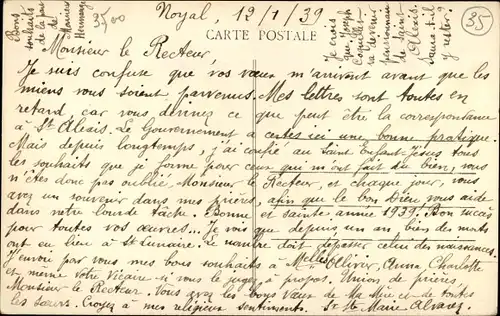 Noyal, 12/1/39
CARTE POSTALE
35,00
35
Bons
souhaits
de la part
de
Hermage
Je crois
que Joseph
va devenir
pensionnaire
de Saint
Alexis.
y rester?
Monsieur le Recteur
Je suis confuse que vos vœux m'arrivent avant que les
miens vous soient parvenus. Mes lettres sont toutes en
retard, car vous devinez ce que peut être la correspondance
à St Alexis. Le Gouvernement a certes ici une bonne pratique.
Mais depuis longtemps j'ai confié au Saint Enfant Jésus tous
les souhaits que je forme pour ceux qui m'ont fait du bien, vous
n'êtes donc pas oublié, Monsieur le Recteur, et chaque jour, vous
avez un souvenir dans mes prières, afin que le bon Dieu vous aide
dans votre lourde tâche. Bonne et sainte année 1939. Bon succès
pour toutes vos œuvres... Je vois que depuis un an bien des morts
ont eu lieu à St Lunaire. Le nombre doit dépasser celui des naissances.
J'envoie par vous mes bons souhaits à Melles Ollivier, Anna, Charlotte
et même votre Vicaire si vous le jugez à propos. Union de prières,
Monsieur le Recteur. Vous avez les bons vœux de Ma Mère et de toutes
les sœurs. Croyez à mes religieux sentiments. Sr Ste Marie Alvarez